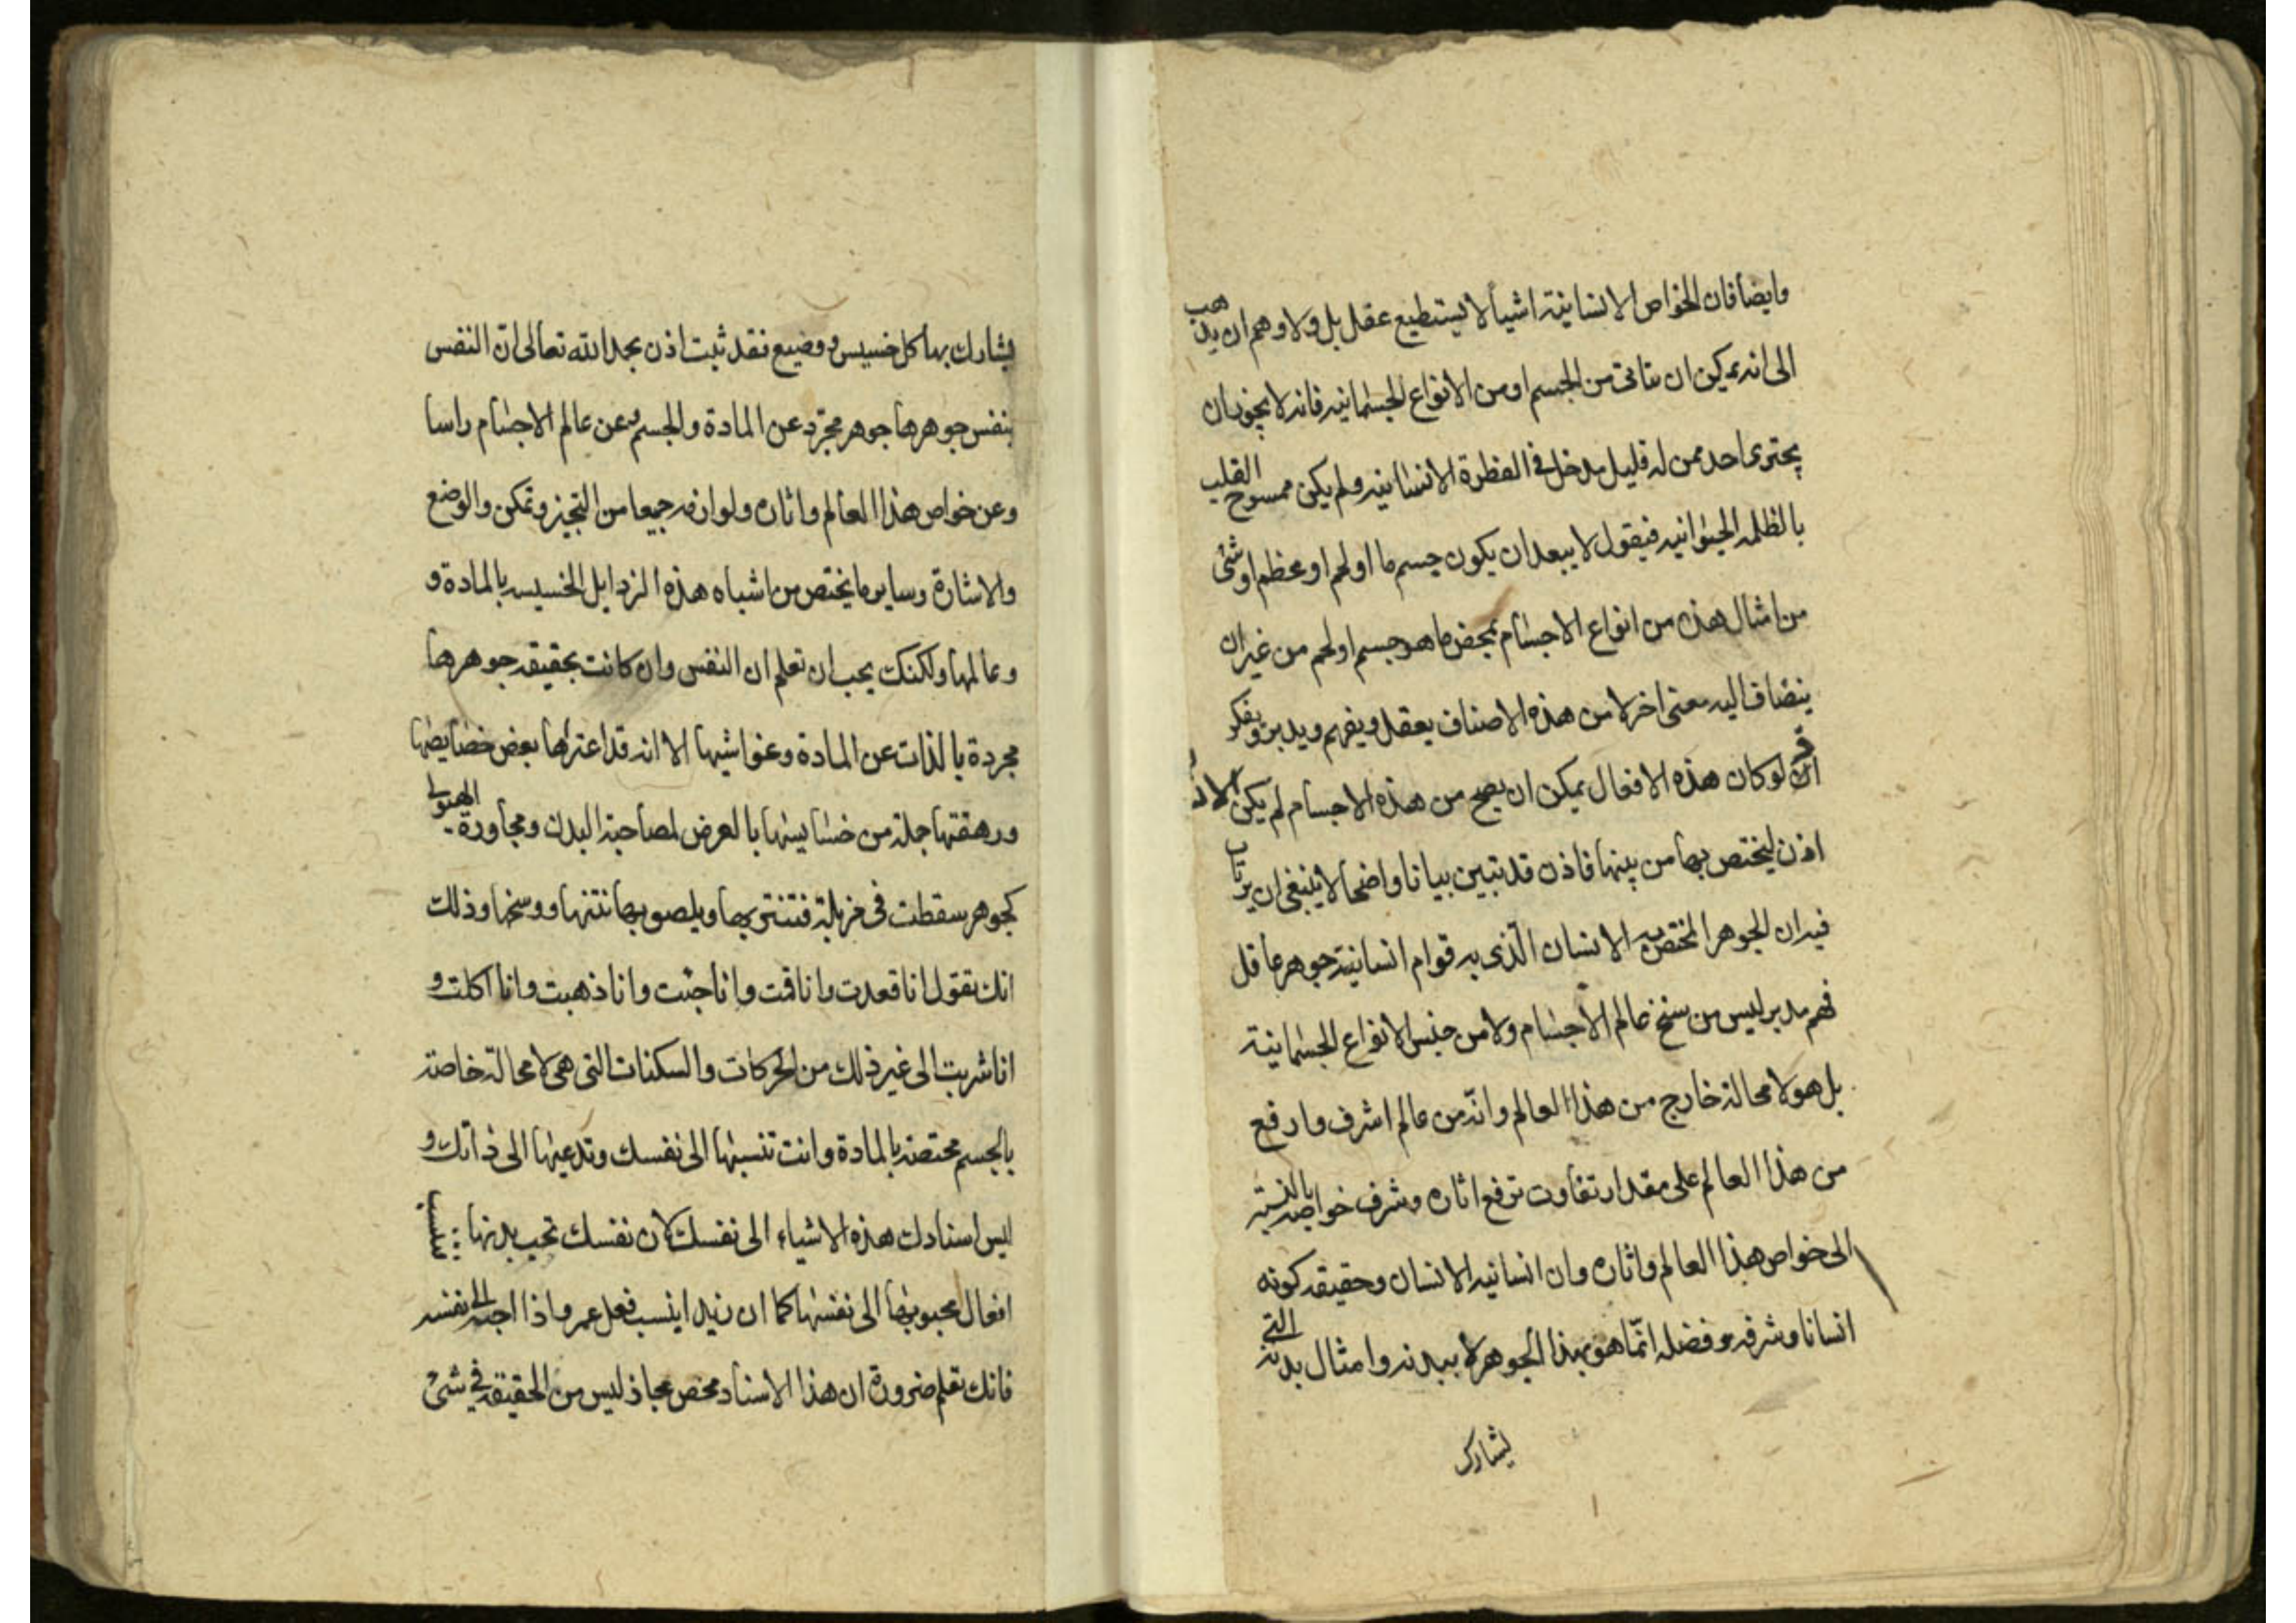 وايضا فان الخواص الانسانية اشيأ لا يستطيع عقل بل ولا وهم ان يذهب
الى انه يمكن ان يتاتى من الجسم او من الانواع الجسمانيه فانه لا يجوز ان
يجترى احد ممن له قليل مدخل فى الفطرة الانسانيه ولم يكن ممسوح القلب
بالظلمه الحيوانيه فيقول لا يبعد ان يكون جسم ما او لحم او عظم او شئ
من امثال هذه من انواع الاجسام بمحض ما هو جسم او لحم من غير ان
ينضاف اليه معنى اخر لا من هذه الاصناف يعقل ويفهم ويدبر ويفكر
لو كان هذه الافعال يمكن ان يصح من هذه الاجسام لم يكن
اذن ليختص بها من بينها فاذن قد تبين بيانا واضحا لا ينبغى ان يرتاب
فيه ان الجوهر المختص به الانسان الّذى به قوام انسانيته جوهر عاقل
فهم مدبر ليس من سنخ عالم الاجسام ولا من جنس الانواع الجسمانية
بل هو لا محالة خارج من هذا العالم وانّه من عالم اشرف وارفع
من هذا العالم على مقدار تفاوت ترفع اثاره وشرف خواصه بالنسبة
الى خواص هذا العالم واثاره وان انسانيه الانسان وحقيقه كونه
انسانا وشرفه وفضله انّما هو بهذا الجوهر لا ببدنه وامثال بدنه التى
يشارك
يشارك بها كل خسيس ووضيع فقد ثبت اذن بحمد الله تعالى انّ النفس
بنفس جوهرها جوهر مجرّد عن المادة والجسم وعن عالم الاجسام راسا
وعن خواص هذا العالم واثاره ولوازمه جميعا من التحيز وتمكن والوضع
والاشارة وساير ما يختص من اشباه هذه الرذايل الخسيسه بالمادة و
وعالمها ولكنك يجب ان تعلم ان النفس وان كانت بحقيقه جوهرها
مجردة بالذات عن المادة وغواشيها الا انه قد اعترلها بعض خصايصها
ورهقتها جملة من خسايسها بالعرض لمصاحبة البدن ومجاورة الهيولى
كجوهر سقطت فى مزبلة فتنتر بها ويلصو بها نتنها ووسخها وذلك
انك تقول انا قعدت وانا قمت وانا جئت وانا ذهبت وانا اكلت و
انا شربت الى غير ذلك من الحركات والسكنات التى هى لا محالة خاصة
بالجسم مختصة بالمادة وانت تنسبها الى نفسك وتدعيها الى ذاتك و
ليس اسنادك هذه الاشياء الى نفسك لان نفسك تحب بدنها
افعال محبوبها الى نفسها كما ان زيدا ينسب فعل عمر واذا احبه الى نفسه
فانك تعلم ضرورة ان هذا الاسناد محض مجاز ليس من الحقيقه فى شئ